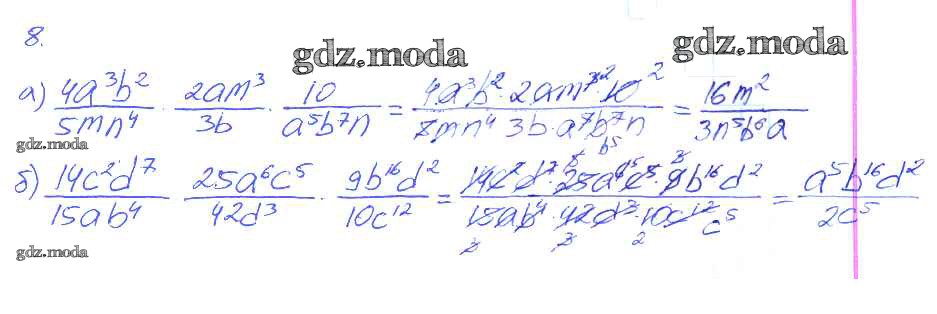 8.
gdz.moda gdz.moda
а) 4a³b²/5mn⁴ · 2am³/3b · 10/a⁵b⁷n = 4a³b²·2am³·10/5mn⁴·3b·a⁷b⁷n = 16m²/3n⁵b⁶a
gdz.moda
б) 14c²d⁷/15ab⁴ · 25a⁶c⁵/42d³ · 9b¹⁶d²/10c¹² = 14c²d⁷·25a⁶c⁵·9b¹⁶d²/15ab⁴·42d³·10c¹² = a⁵b¹⁶d²/2c⁵
gdz.moda